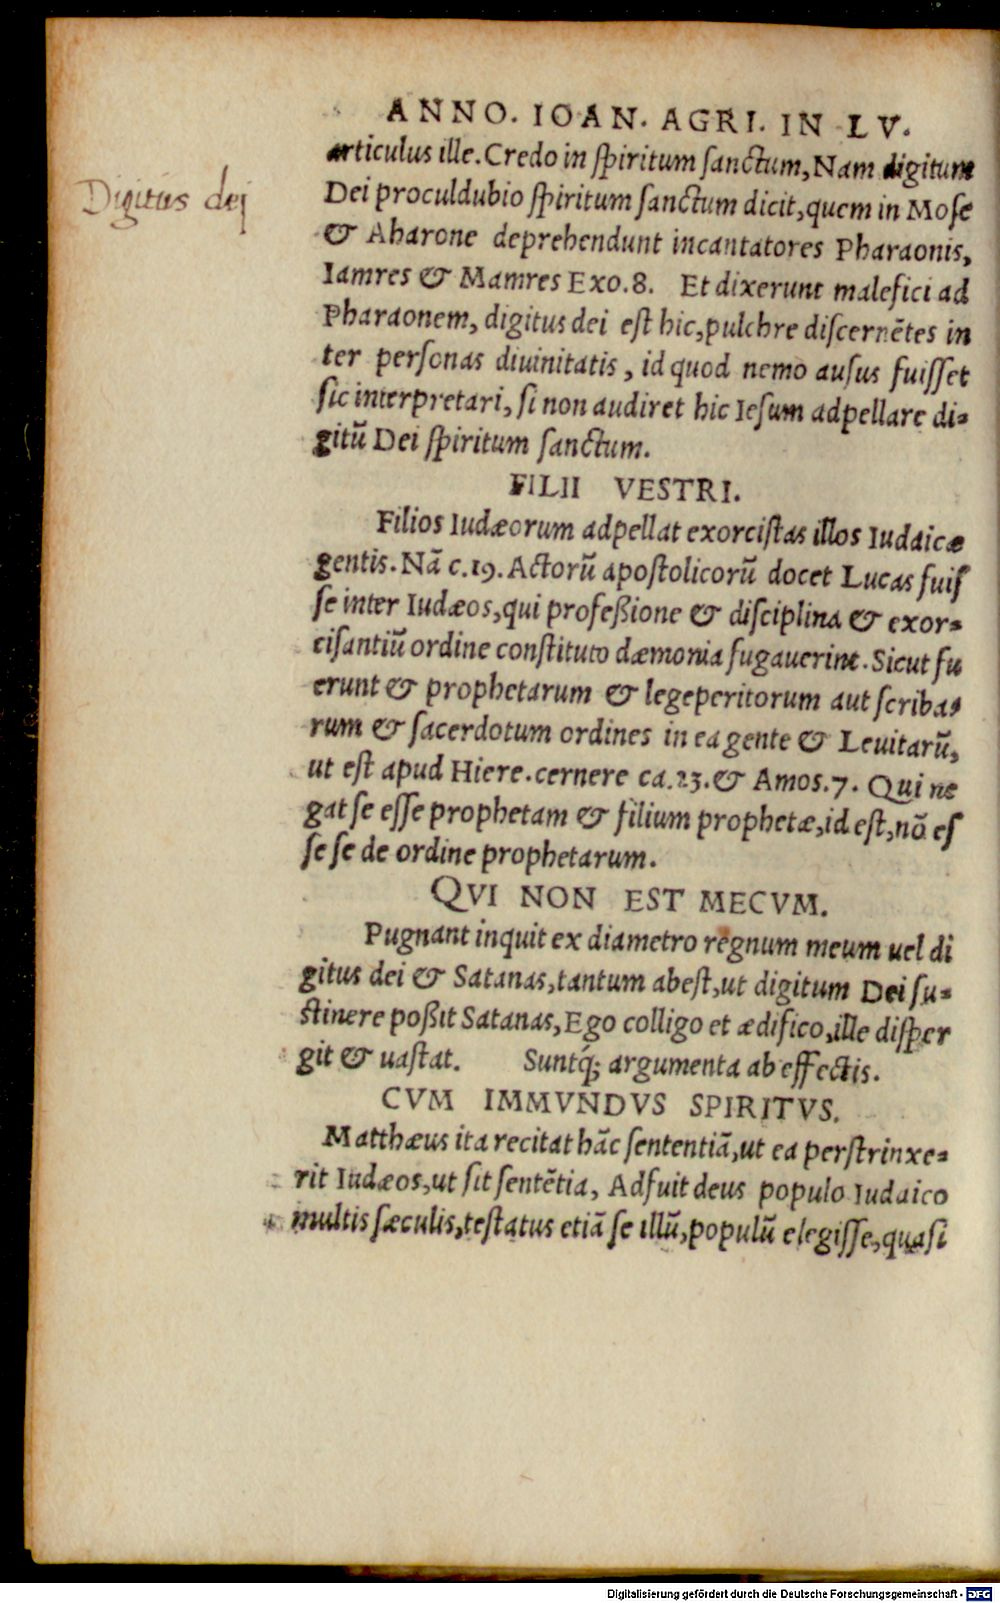 ANNO. IOAN. AGRI. IN LV.
articulus ille. Credo in ſpiritum ſanctum, Nam digitum
Digitus dej
Dei proculdubio ſpiritum ſanctum dicit, quem in Moſe
& Aharone deprehendunt incantatores Pharaonis,
Iamres & Mamres Exo. 8. Et dixerunt malefici ad
Pharaonem, digitus dei eſt hic, pulchre diſcernẽtes in
ter perſonas diuinitatis, id quod nemo auſus fuiſſet
ſic interpretari, ſi non audiret hic Ieſum adpellare di-
gitũ Dei ſpiritum ſanctum.
FILII VESTRI.
Filios Iudæorum adpellat exorciſtas illos Iudaicæ
gentis. Nã c. 19. Actorũ apoſtolicorũ docet Lucas fuiſ
ſe inter Iudæos, qui profeßione & diſciplina & exor-
ciſantiũ ordine conſtituto dæmonia fugauerint. Sicut fu
erunt & prophetarum & legeperitorum aut ſcriba-
rum & ſacerdotum ordines in ea gente & Leuitarũ,
ut eſt apud Hiere. cernere ca. 23. & Amos. 7. Qui ne
gat ſe eſſe prophetam & filium prophetæ, id eſt, nõ eſ
ſe ſe de ordine prophetarum.
QVI NON EST MECVM.
Pugnant inquit ex diametro regnum meum uel di
gitus dei & Satanas, tantum abeſt, ut digitum Dei ſu-
ſtinere poßit Satanas, Ego colligo et ædifico, ille diſper
git & uaſtat. Suntq́; argumenta ab effectis.
CVM IMMVNDVS SPIRITVS.
Matthæus ita recitat hãc ſententiã, ut ea perſtrinxe-
rit Iudæos, ut ſit ſentẽtia, Adfuit deus populo Iudaico
multis ſæculis, teſtatus etiã ſe illũ, populũ elegiſſe, quaſi
Digitalisierung gefördert durch die Deutsche Forschungsgemeinschaft - DFG